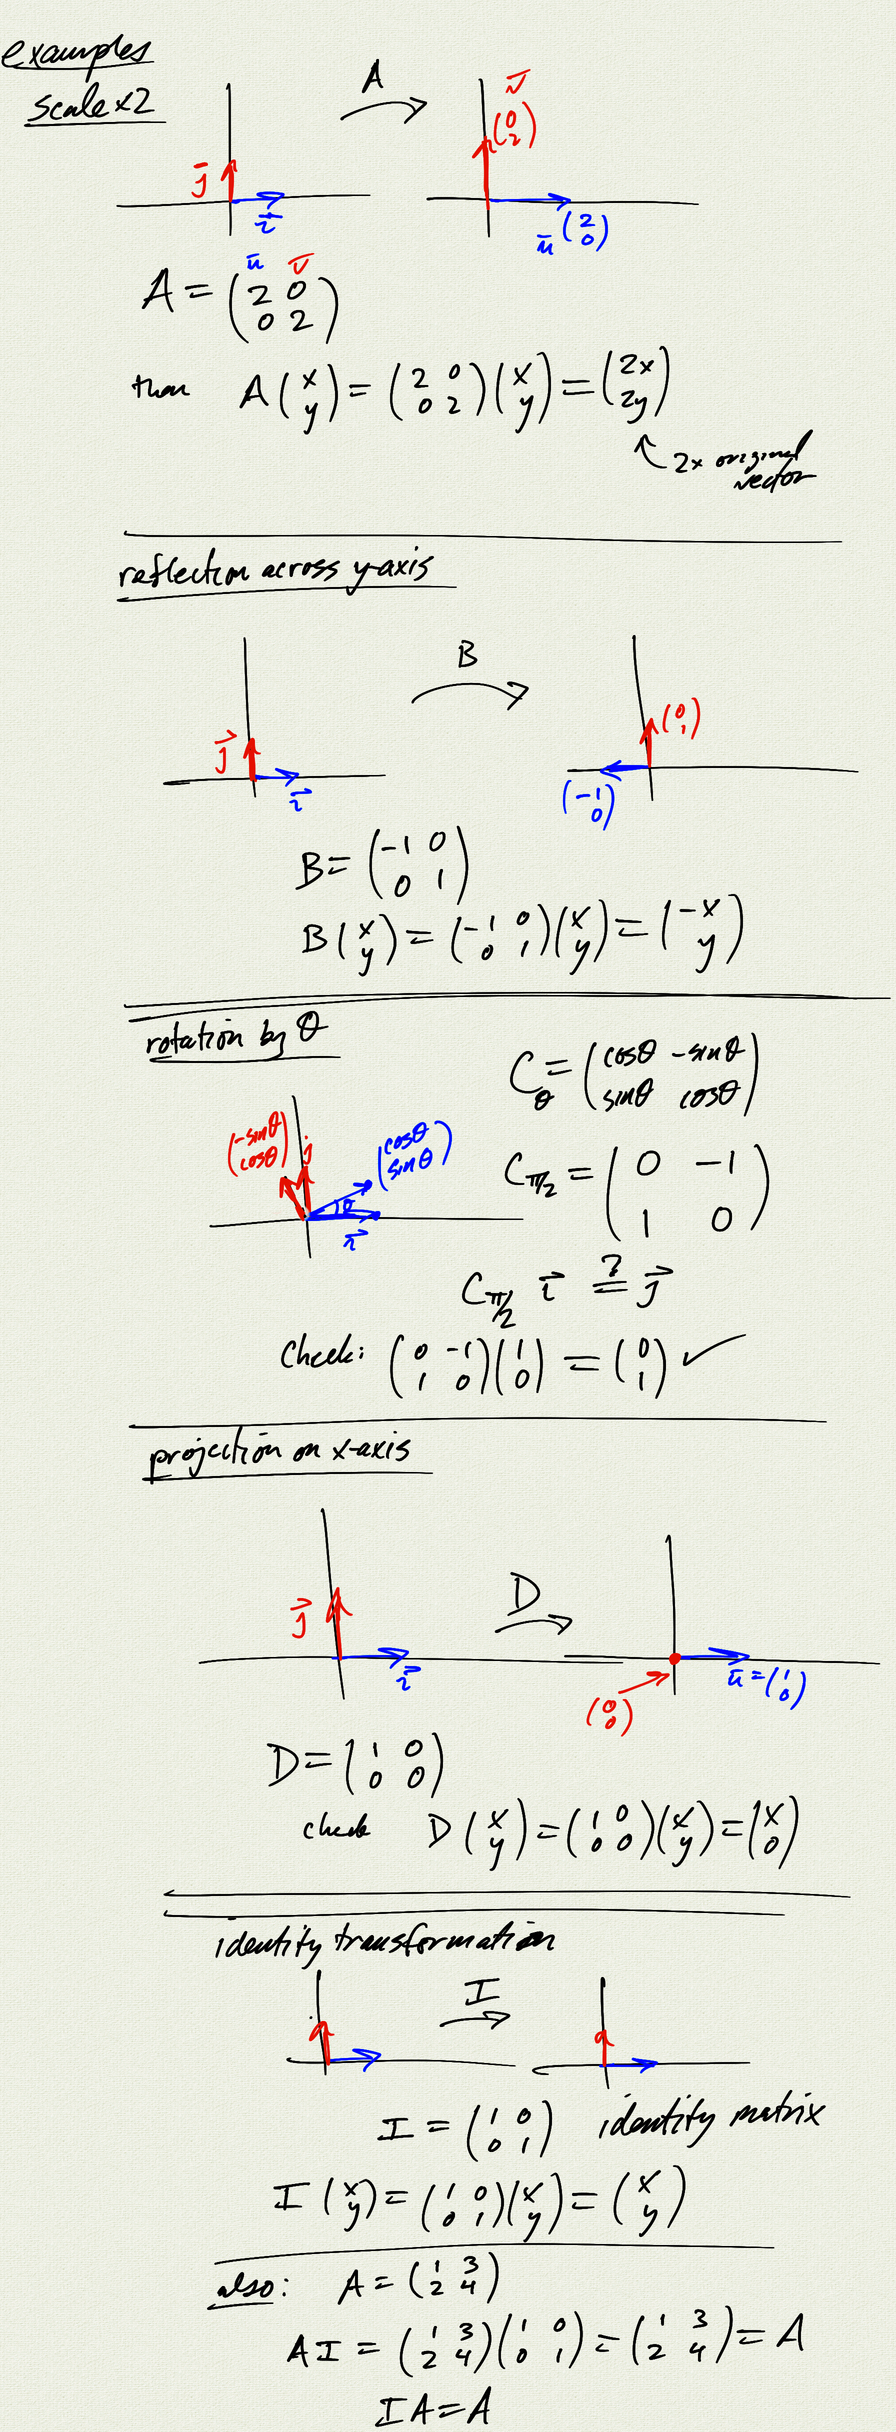 examples
scale x2
A
j⃗
i⃗
v̄
(0 2)
ū (2 0)
ū v̄
A = (2 0
0 2)
then A (x y) = (2 0
0 2) (x y) = (2x 2y)
2x original
vector
reflection across y-axis
B
j⃗
i⃗
(0 1)
(-1 0)
B = (-1 0
0 1)
B (x y) = (-1 0
0 1) (x y) = (-x y)
rotation by θ
C_θ = (cosθ -sinθ
sinθ cosθ)
(-sinθ cosθ)
j
(cosθ sinθ)
θ
i⃗
C_π/2 = (0 -1
1 0)
C_π/2 i⃗ ≟ j⃗
Check: (0 -1
1 0) (1 0) = (0 1) ✓
projection on x-axis
D
j⃗
i⃗
(0 0)
ū = (1 0)
D = (1 0
0 0)
check D (x y) = (1 0
0 0) (x y) = (x 0)
identity transformation
I
I = (1 0
0 1) identity matrix
I (x y) = (1 0
0 1) (x y) = (x y)
also: A = (1 3
2 4)
AI = (1 3
2 4) (1 0
0 1) = (1 3
2 4) = A
IA = A